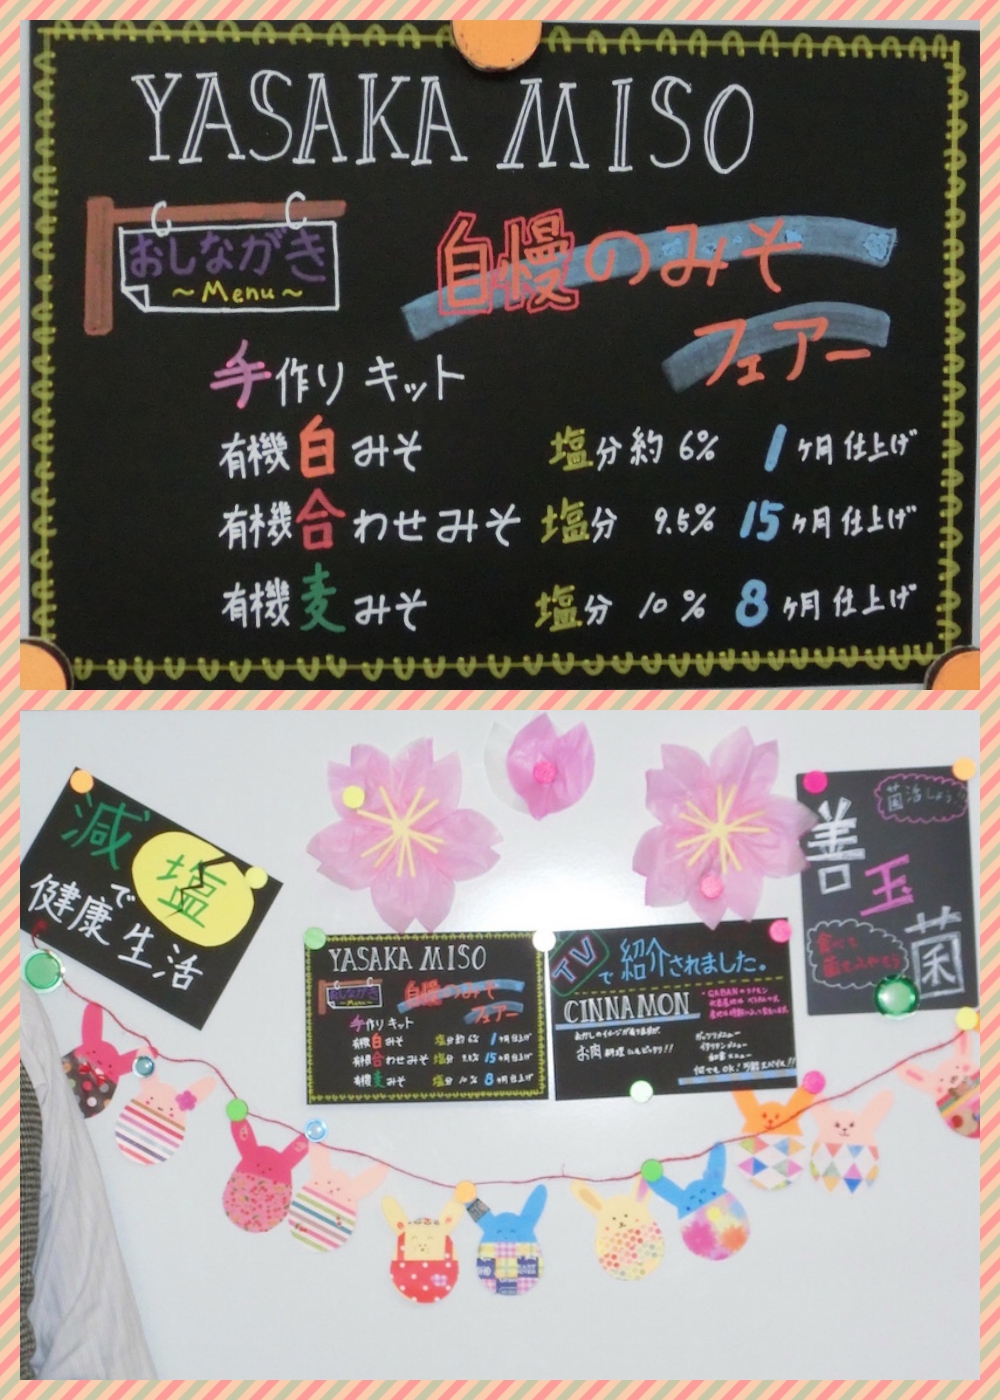 YASAKA MISO
おしながき
~Menu~
自慢のみそ
フェアー
手作り キット
有機白みそ 塩分約 6% 1ヶ月仕上げ
有機合わせみそ 塩分 9.5% 15ヶ月仕上げ
有機麦みそ 塩分 10% 8ヶ月仕上げ
減塩
で
健康生活
YASAKA MISO
おしながき
~Menu~
自慢のみそ
フェアー
手作り キット
有機白みそ 塩分約 6% 1ヶ月仕上げ
有機合わせみそ 塩分 9.5% 15ヶ月仕上げ
有機麦みそ 塩分 10% 8ヶ月仕上げ
TVで紹介されました。
CINNAMON
お肉料理にもピッタリ!!
和食メニュー
何でもOK!
菌活しょう
善玉菌
食べて
菌をふやそう